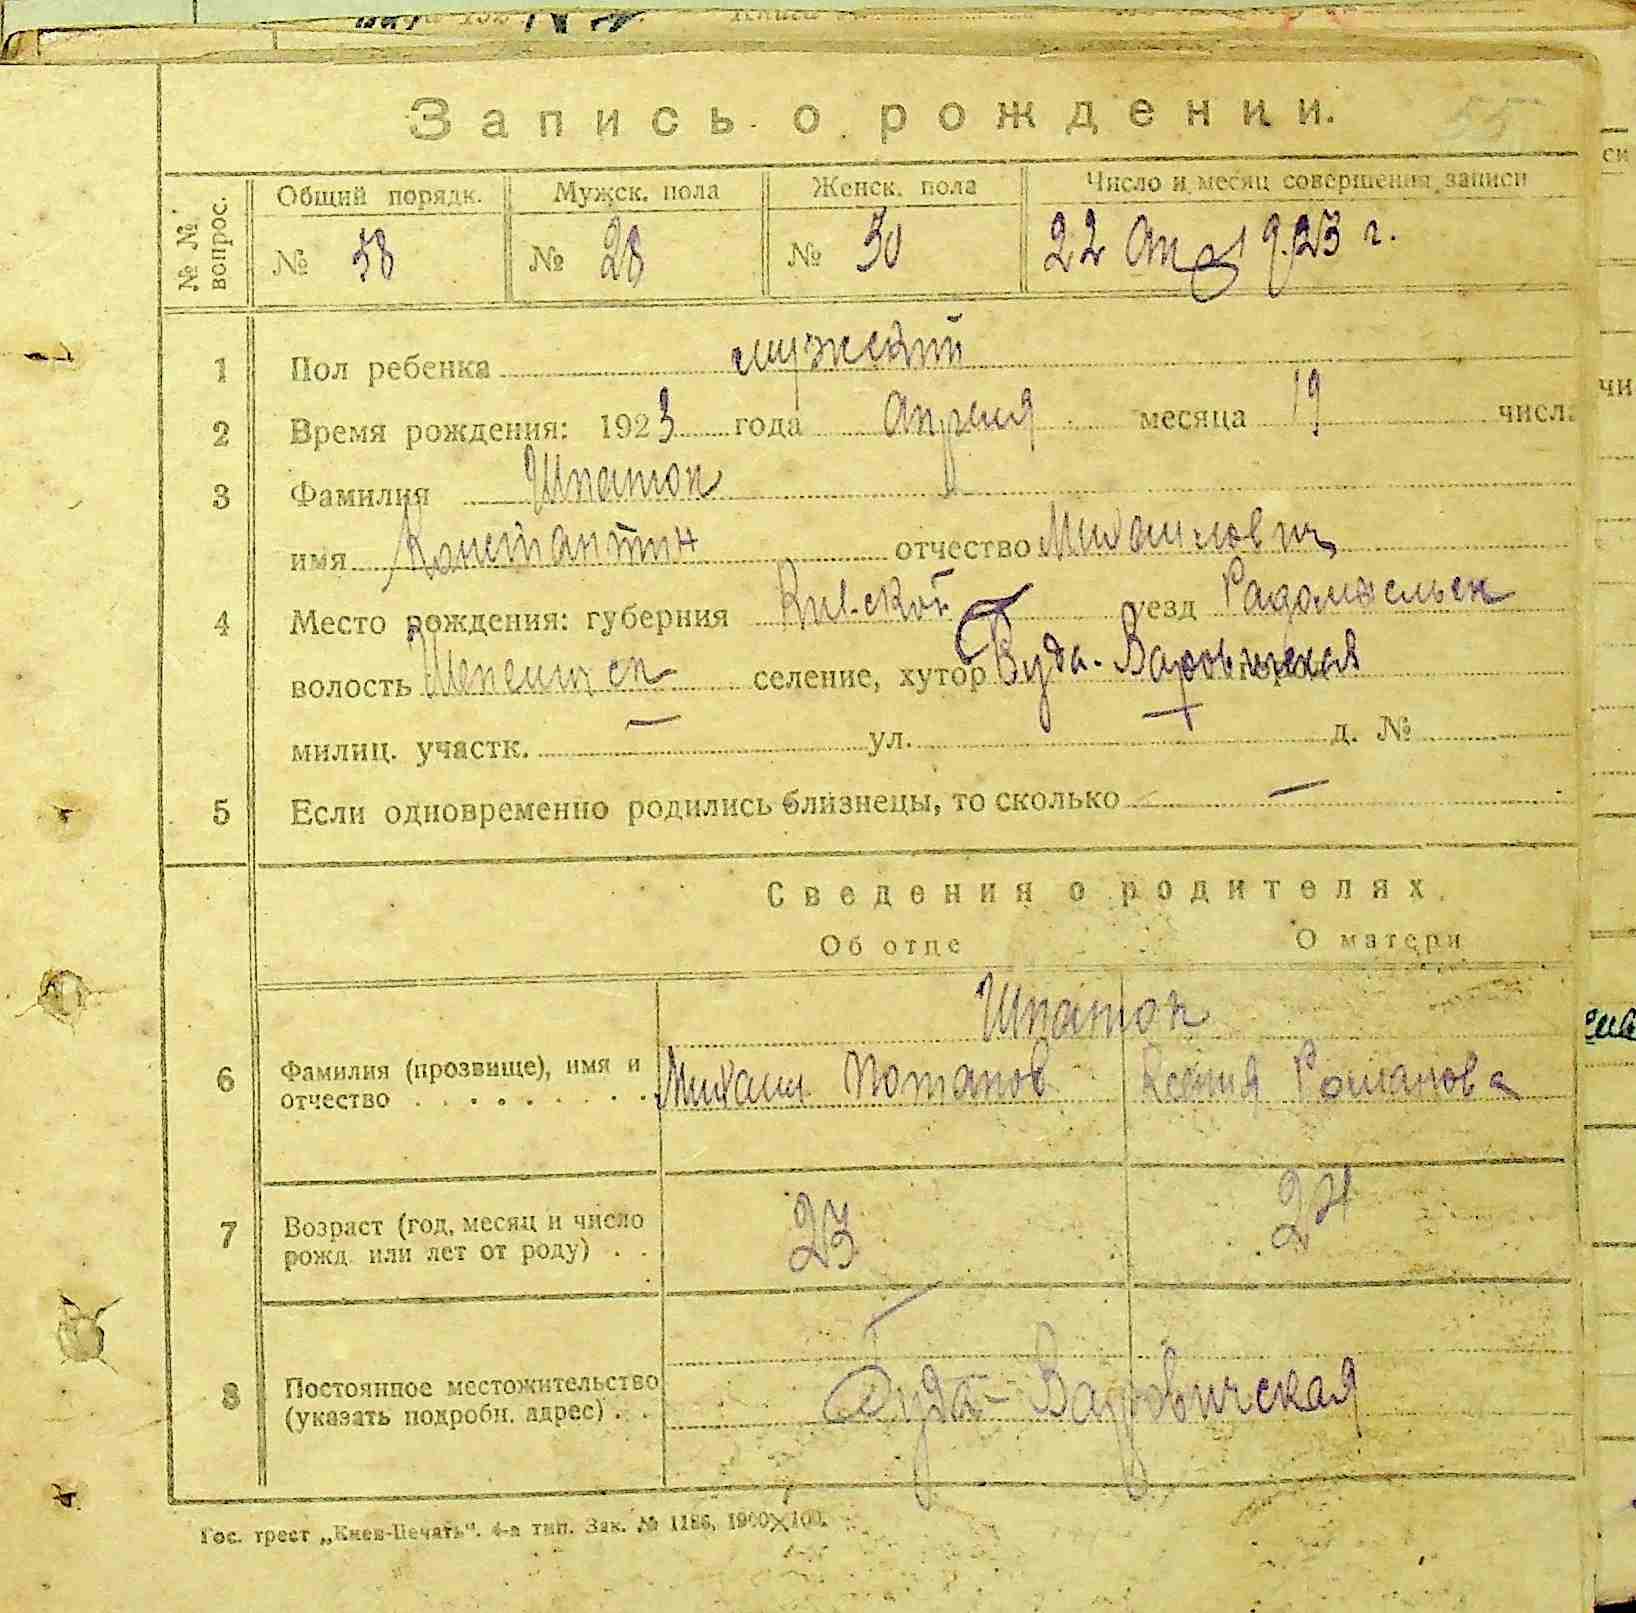 Запись о рождении.
55
№ № вопрос.
Общий порядк. Мужск. пола Женск. пола Число и месяц совершения записи
№ 58 № 28 № 30 22 Апр 923 г.
1 Пол ребенка мужский
2 Время рождения: 1923 года Апреля месяца 19 числ.
3 Фамилия Шпаток
имя Константин отчество Михаилович
4 Место рождения: губерния Киевской уезд Радомысльск
волость Шепелич ск селение, хутор Буда-Варовическая
милиц. участк. — ул. — д. №
5 Если одновременно родились близнецы, то сколько —
Сведения о родителях.
Об отце О матери
Шпаток
6 Фамилия (прозвище), имя и Михаил Потапов Ксения Романова
отчество . . . . . . . . . .
7 Возраст (год, месяц и число 23 24
рожд. или лет от роду) . .
8 Постоянное местожительство Буда-Варовическая
(указать подробн. адрес) . .
Гос. трест „Киев-Печать“. 4-а тип. Зак. № 1186, 1900×100.